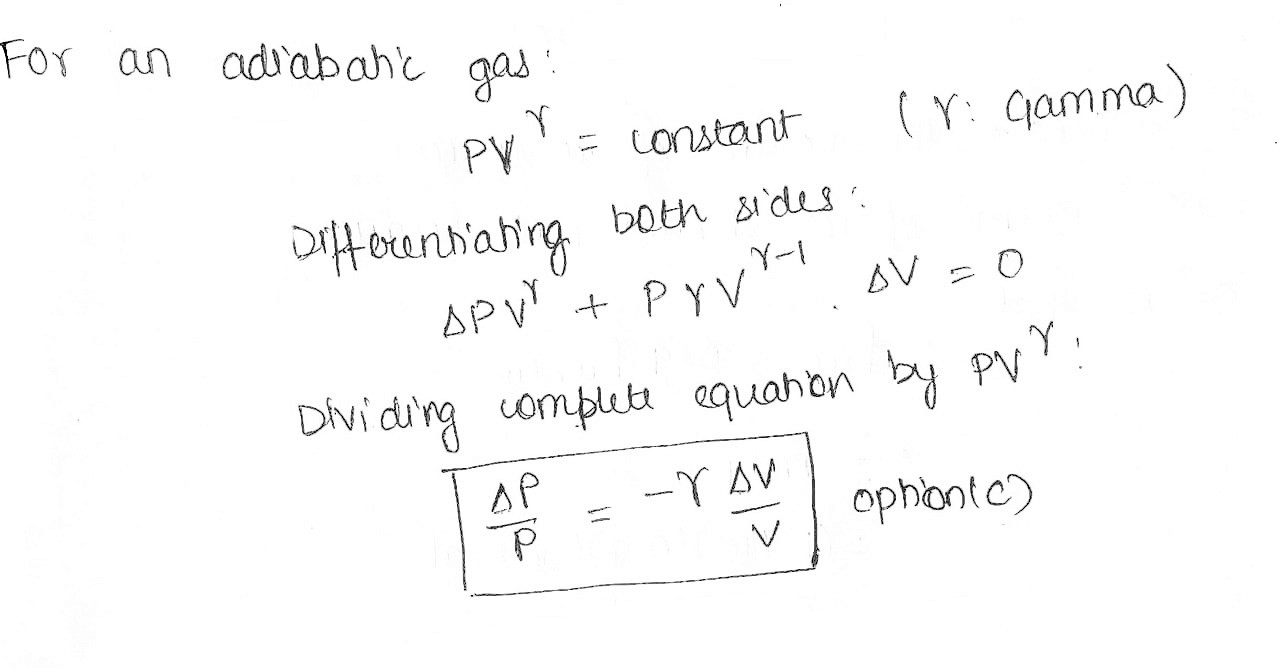 For an adiabatic gas:
PV^γ = constant (γ: Gamma)
Differentiating both sides:
ΔPV^γ + PγV^γ-1 . ΔV = 0
Dividing complete equation by PV^γ:
ΔP/P = -γ ΔV/V option(c)